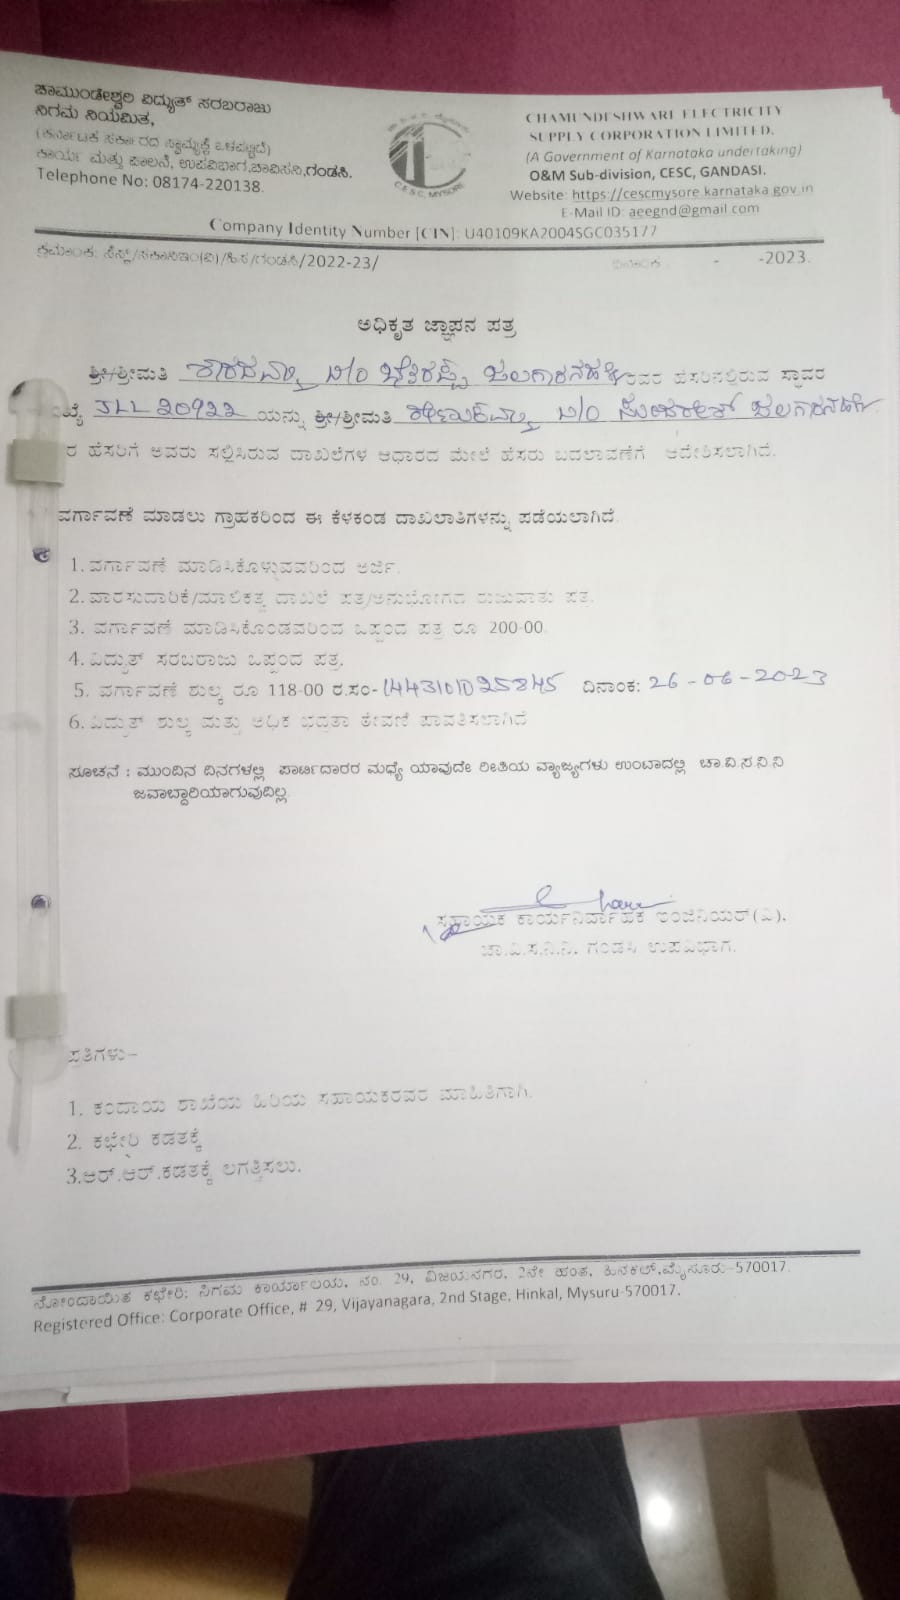 ಚಾಮುಂಡೇಶ್ವರಿ ವಿದ್ಯುತ್ ಸರಬರಾಜು
ನಿಗಮ ನಿಯಮಿತ,
(ಕರ್ನಾಟಕ ಸರ್ಕಾರದ ಸ್ವಾಮ್ಯಕ್ಕೆ ಒಳಪಟ್ಟಿದೆ)
ಕಾರ್ಯ ಮತ್ತು ಪಾಲನೆ, ಉಪವಿಭಾಗ,ಚಾವಿಸನಿ,ಗಂಡಸಿ.
Telephone No: 08174-220138.
C.E.S.C, MYSORE
CHAMUNDESHWARI ELECTRICITY
SUPPLY CORPORATION LIMITED.
(A Government of Karnataka undertaking)
O&M Sub-division, CESC, GANDASI.
Website: https://cescmysore.karnataka.gov.in
E-Mail ID: aeegnd@gmail.com
Company Identity Number [CIN]: U40109KA2004SGC035177
ಕ್ರಮಾಂಕ: /2022-23/ ದಿನಾಂಕ - -2023.
ಅಧಿಕೃತ ಜ್ಞಾಪನ ಪತ್ರ
ಶ್ರೀ/ಶ್ರೀಮತಿ ರವರ ಹೆಸರಿನಲ್ಲಿರುವ ಸ್ಥಾವರ
JLL 20922 ಯನ್ನು ಶ್ರೀ/ಶ್ರೀಮತಿ
ರ ಹೆಸರಿಗೆ ಅವರು ಸಲ್ಲಿಸಿರುವ ದಾಖಲೆಗಳ ಆಧಾರದ ಮೇಲೆ ಹೆಸರು ಬದಲಾವಣೆಗೆ ಆದೇಶಿಸಲಾಗಿದೆ.
ವರ್ಗಾವಣೆ ಮಾಡಲು ಗ್ರಾಹಕರಿಂದ ಈ ಕೆಳಕಂಡ ದಾಖಲಾತಿಗಳನ್ನು ಪಡೆಯಲಾಗಿದೆ.
1. ವರ್ಗಾವಣೆ ಮಾಡಿಸಿಕೊಳ್ಳುವವರಿಂದ ಅರ್ಜಿ.
2. ವಾರಸುದಾರಿಕೆ/ಮಾಲಿಕತ್ವ ದಾಖಲೆ ಪತ್ರ/ಅನುಭೋಗದ ರುಜುವಾತು ಪತ್ರ.
3. ವರ್ಗಾವಣೆ ಮಾಡಿಸಿಕೊಂಡವರಿಂದ ಒಪ್ಪಂದ ಪತ್ರ ರೂ 200-00.
4. ವಿದ್ಯುತ್ ಸರಬರಾಜು ಒಪ್ಪಂದ ಪತ್ರ.
5. ವರ್ಗಾವಣೆ ಶುಲ್ಕ ರೂ 118-00 ರ.ಸಂ- ದಿನಾಂಕ: 26-06-2023
6. ವಿದ್ಯುತ್ ಶುಲ್ಕ ಮತ್ತು ಅಧಿಕ ಭದ್ರತಾ ಠೇವಣಿ ಪಾವತಿಸಲಾಗಿದೆ
ಸೂಚನೆ : ಮುಂದಿನ ದಿನಗಳಲ್ಲಿ ಪಾರ್ಟಿದಾರರ ಮಧ್ಯೆ ಯಾವುದೇ ರೀತಿಯ ವ್ಯಾಜ್ಯಗಳು ಉಂಟಾದಲ್ಲಿ ಚಾ.ವಿ.ಸ.ನಿ.ನಿ
ಜವಾಬ್ದಾರಿಯಾಗುವುದಿಲ್ಲ.
ಸಹಾಯಕ ಕಾರ್ಯನಿರ್ವಾಹಕ ಇಂಜಿನಿಯರ್(ವಿ).
ಚಾ.ವಿ.ಸ.ನಿ.ನಿ. ಗಂಡಸಿ ಉಪವಿಭಾಗ.
ಪ್ರತಿಗಳು-
1. ಕಂದಾಯ ಶಾಖೆಯ ಹಿರಿಯ ಸಹಾಯಕರವರ ಮಾಹಿತಿಗಾಗಿ.
2. ಕಛೇರಿ ಕಡತಕ್ಕೆ
3.ಆರ್.ಆರ್.ಕಡತಕ್ಕೆ ಲಗತ್ತಿಸಲು.
ನೋಂದಾಯಿತ ಕಛೇರಿ: ನಿಗಮ ಕಾರ್ಯಾಲಯ, ನಂ. 29, ವಿಜಯನಗರ, 2ನೇ ಹಂತ, ಹಿನಕಲ್,ಮೈಸೂರು-570017.
Registered Office: Corporate Office, # 29, Vijayanagara, 2nd Stage, Hinkal, Mysuru-570017.